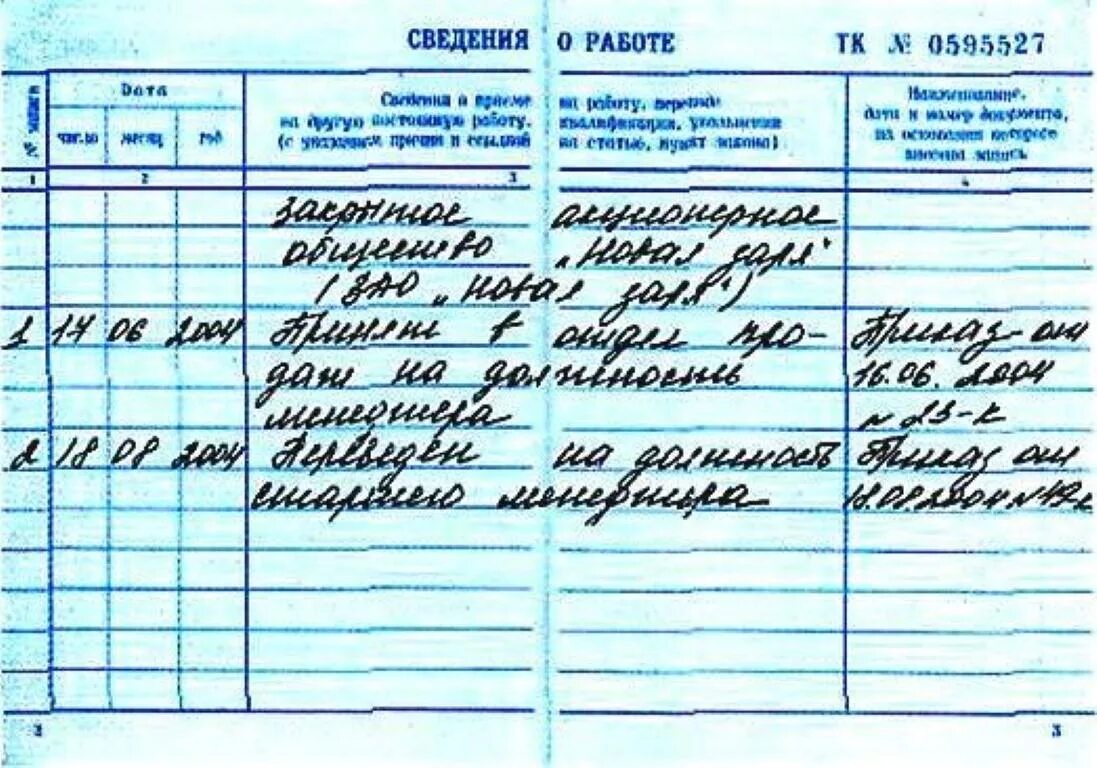 СВЕДЕНИЯ О РАБОТЕ ТК № 0595527
№ записи
Дата
число месяц год
Сведения о приеме на работу, перевод
на другую постоянную работу, квалификации, увольнении
(с указанием причин и ссылкой на статью, пункт закона)
Наименование,
дата и номер документа,
на основании которого
внесена запись
1 2 3 4
Закрытое акционерное
общество „Новая заря"
(ЗАО „Новая заря")
1 17 06 2004 Принят в отдел про- Приказ от
даж на должность 16.06.2004
менеджера № 23-к
2 18 08 2004 Переведен на должность Приказ от
старшего менеджера 18.08.2004 №
2 3